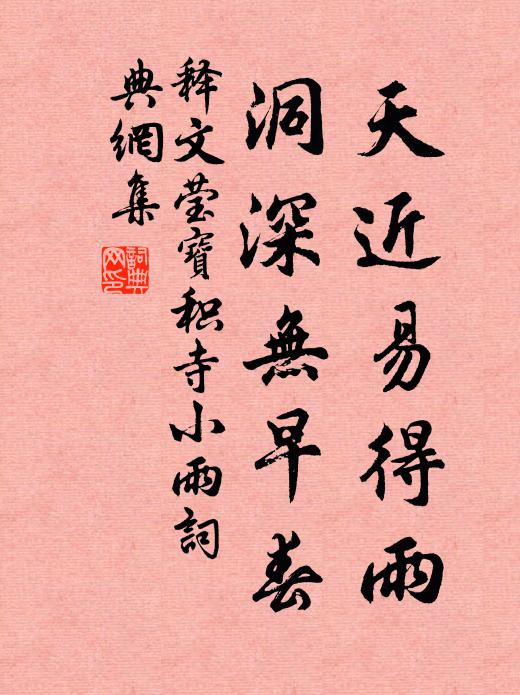 天近易得雨
洞深無早春
释文莹寶积寺小雨詞
典網集
詞典
网印